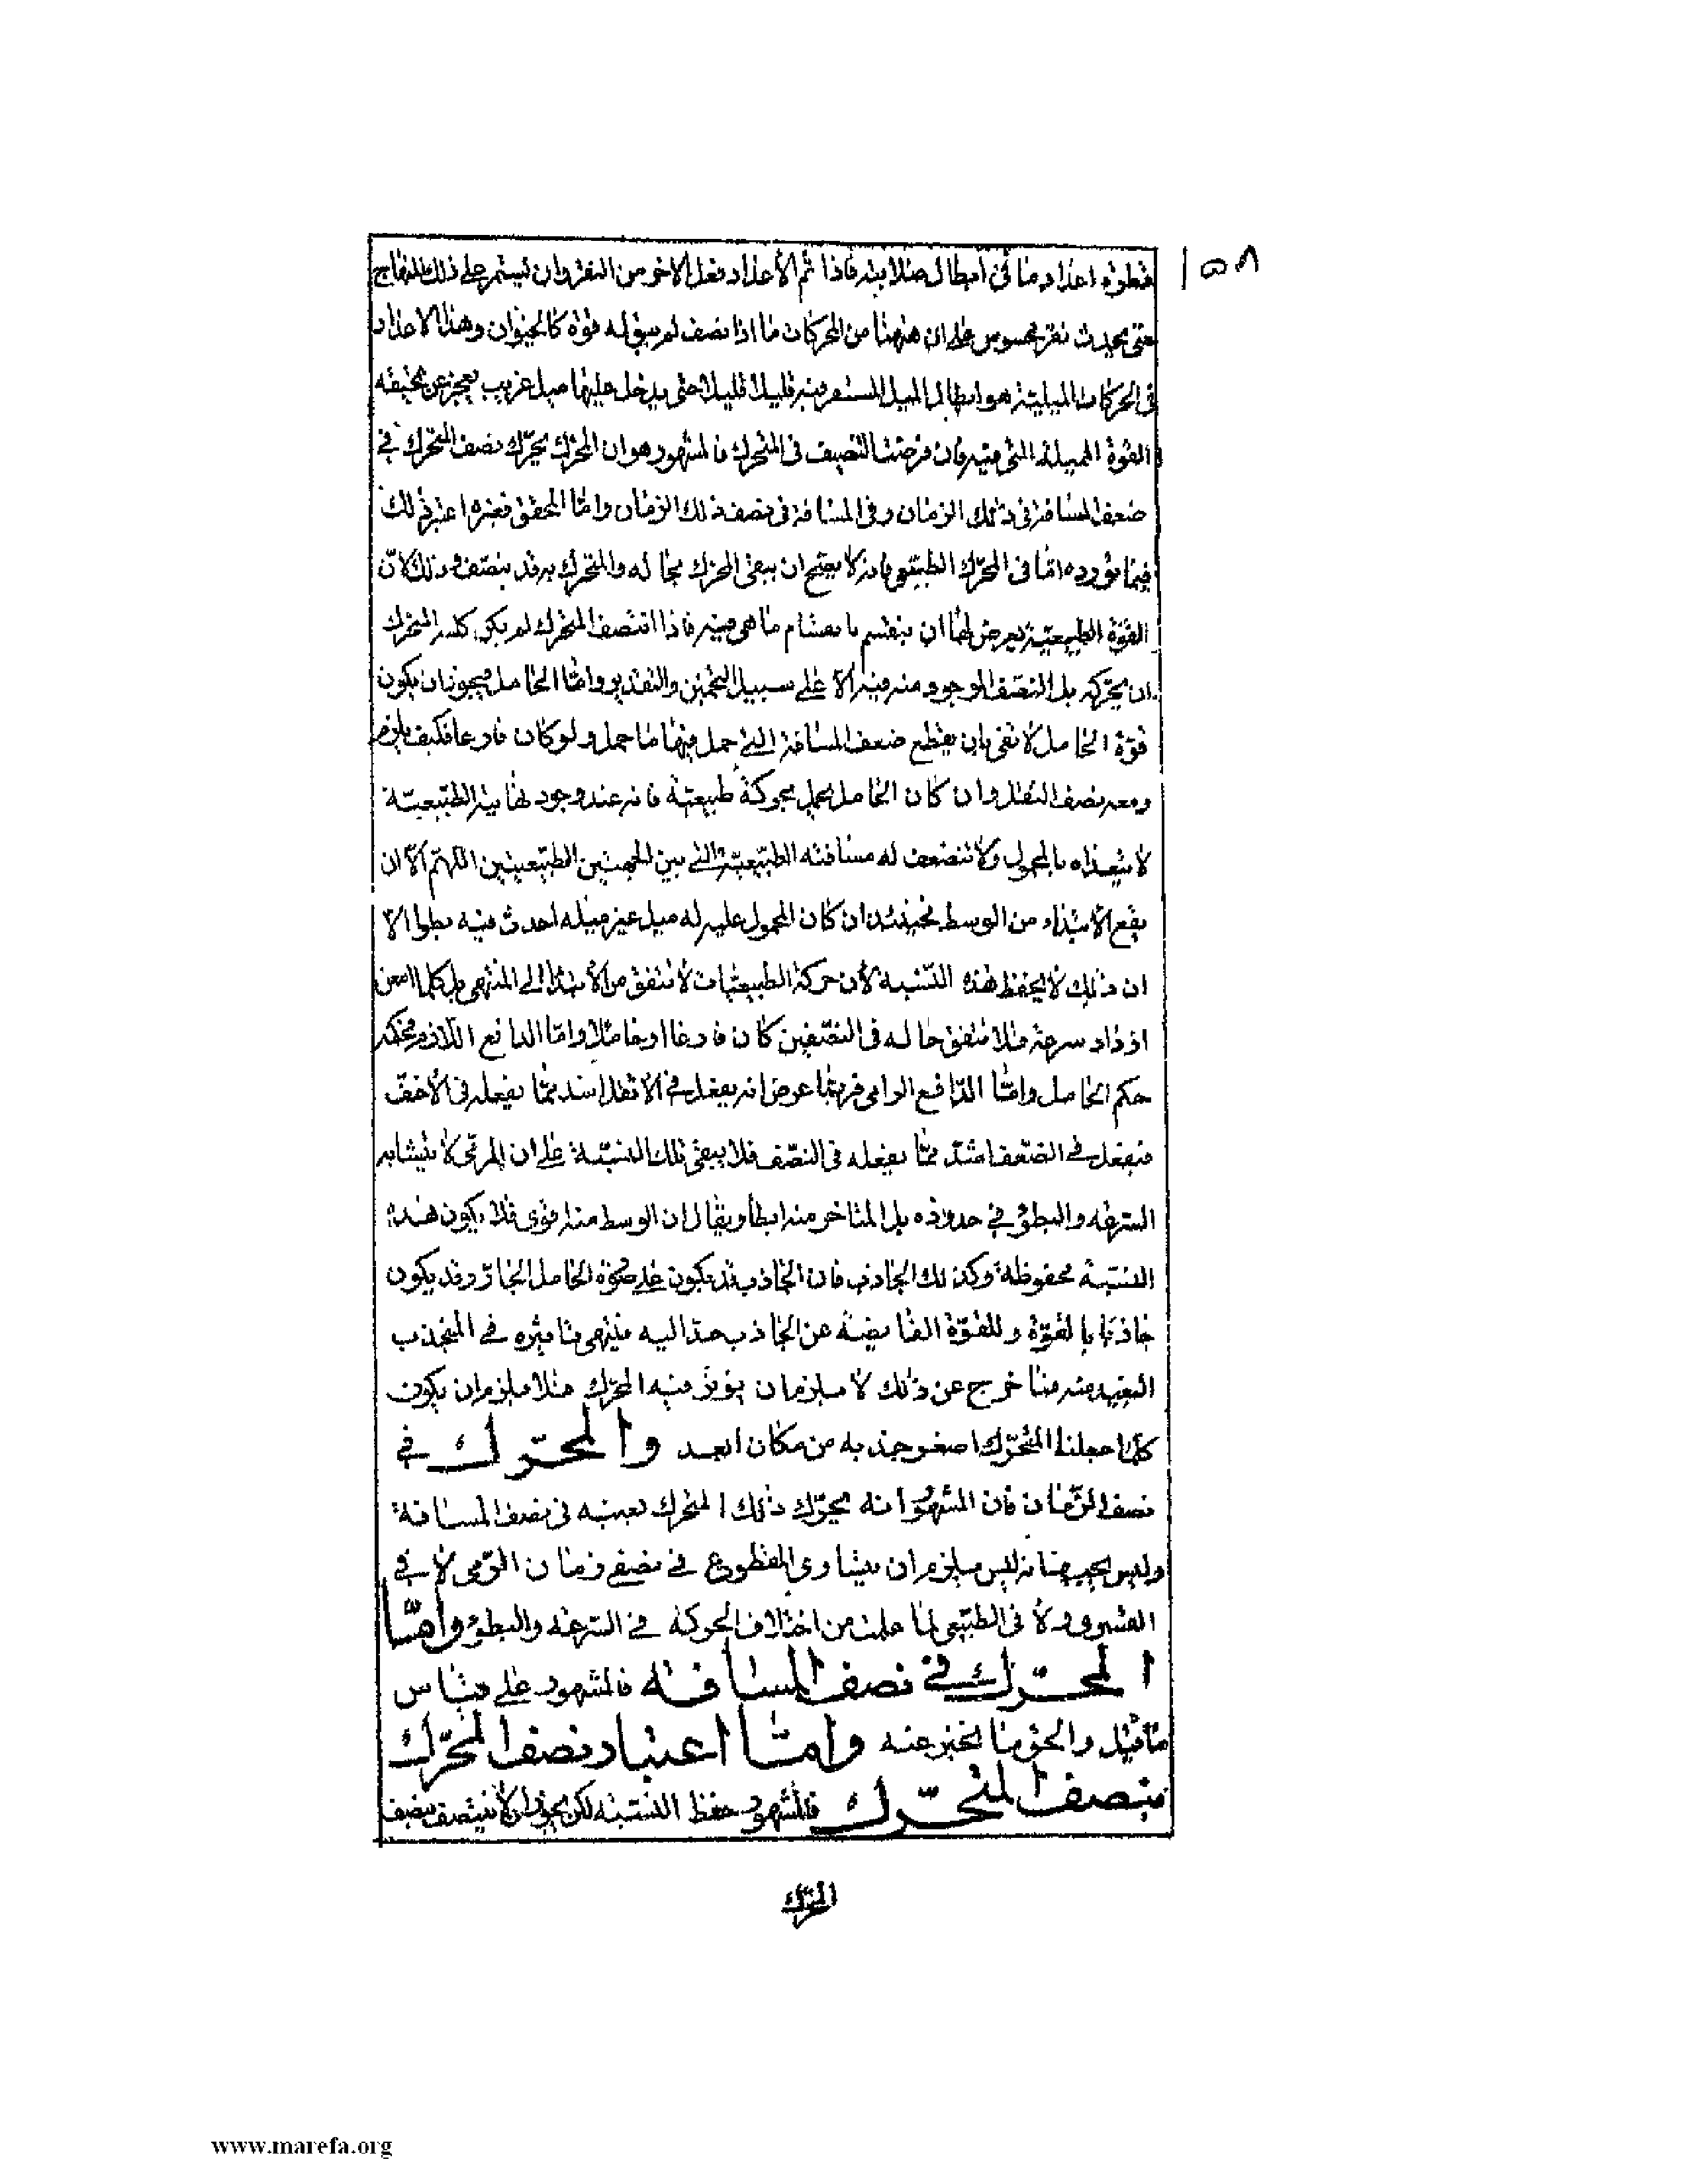 ١٥٨
قطرة اعداد ما فى ابطال صلابته فاذا تم الأعداد فعل الاخر من النقر وان يستمر على ذلك المنهاج
حتى يحدث نقر محسوس على ان ههنا من المحركات ما اذا نصف لم يبق له قوة كالحيوان وهذا الاعداد
فى الحركات الميلية هو ابطال الميل المستقر فيه قليلا قليلا حتى يدخل عليها ميل غريب يعجز عن
القوة المميلة التى فيه فان فرضنا التنصيف فى المتحرك فالمشهور هو ان المحرك يحرك نصف المتحرك فى
ضعف المسافة فى ذلك الزمان وفى المسافة فى نصف ذلك الزمان واما المحقق
فيما نورده اما فى المحرك الطبيعى فانه لا يصح ان يبقى المحرك بحاله والمتحرك به قد ينصف وذلك لأن
القوة الطبيعية يعرض لها ان ينقسم بانقسام ما هى فيه فاذا انتصف المتحرك لم يكن كلية المحرك
ان يحركه بل النصف الموجود منه فيه الا على سبيل التخمين والتقدير واما الحامل فيجوز ان يكون
قوة الحامل لا تفى بان يقطع ضعف المسافة التى حمل فيها ما حمل ولو كان فارغا فكيف يلزم
ومعه نصف الثقل وان كان الحامل يحمل بحركة طبيعية فانه عند وجود نهايته الطبيعية
لا يتعداه بالمحمول ولا تتضعف له مسافته الطبيعية التى بين الجهتين الطبيعيتين اللهم الا ان
يقع الابتداء من الوسط فحينئذ ان كان المحمول عليه له ميل غير ميله احدث فيه بطوا الا
ان ذلك لا يحفظ هذه النسبة لأن حركة الطبيعيات لا تتفق من الابتداء الى المنتهى بل كلما امعن
ازداد سرعة فلا يتفق حاله فى النصفين كان فارغا او حاملا واما الدافع اللازم فحكمه
حكم الحامل واما الدافع الرامى فربما عرض انه يفعل فى الأثقل اشد مما يفعله فى الأخف
فيفعل فى الضعف اشد مما يفعله فى النصف فلا يبقى تلك النسبة على ان المرمى لا يتشابه
السرعة والبطؤ فى حدوده بل المتاخر منه ابطأ ويقال ان الوسط منه اقوى فلا يكون هذه
النسبة محفوظة وكذلك الجاذب فان الجاذب قد يكون على قوة الحامل الجار وقد يكون
جاذبا بالقوة وللقوة الفايضة عن الجاذب حد اليه ينتهى تاثيره فى المنجذب
البعيد منه فما خرج عن ذلك لا يلزم ان يؤثر فيه المحرك فلا يلزم ان يكون
كلما جعلنا المتحرك اصغر جذبه من مكان ابعد والمحرك فى
نصف الزمان فان المشهور انه يحرك ذلك المتحرك بعينه فى نصف المسافة
وليس يجب فانه ليس يلزم ان يتساوى المقطوع فى نصفى زمان الرمى لا فى
القسرى ولا فى الطبيعى لما علمت من اختلاف الحركة فى السرعة والبطؤ واما
المحرك فى نصف المسافة فالمشهور على قياس
ما قيل والحق ما نخبر عنه واما اعتبار نصف المحرك
بنصف المتحرك فالمشهور حفظ النسبة لكن يجوز ان لا ينتصف نصف
المحرك
www.marefa.org